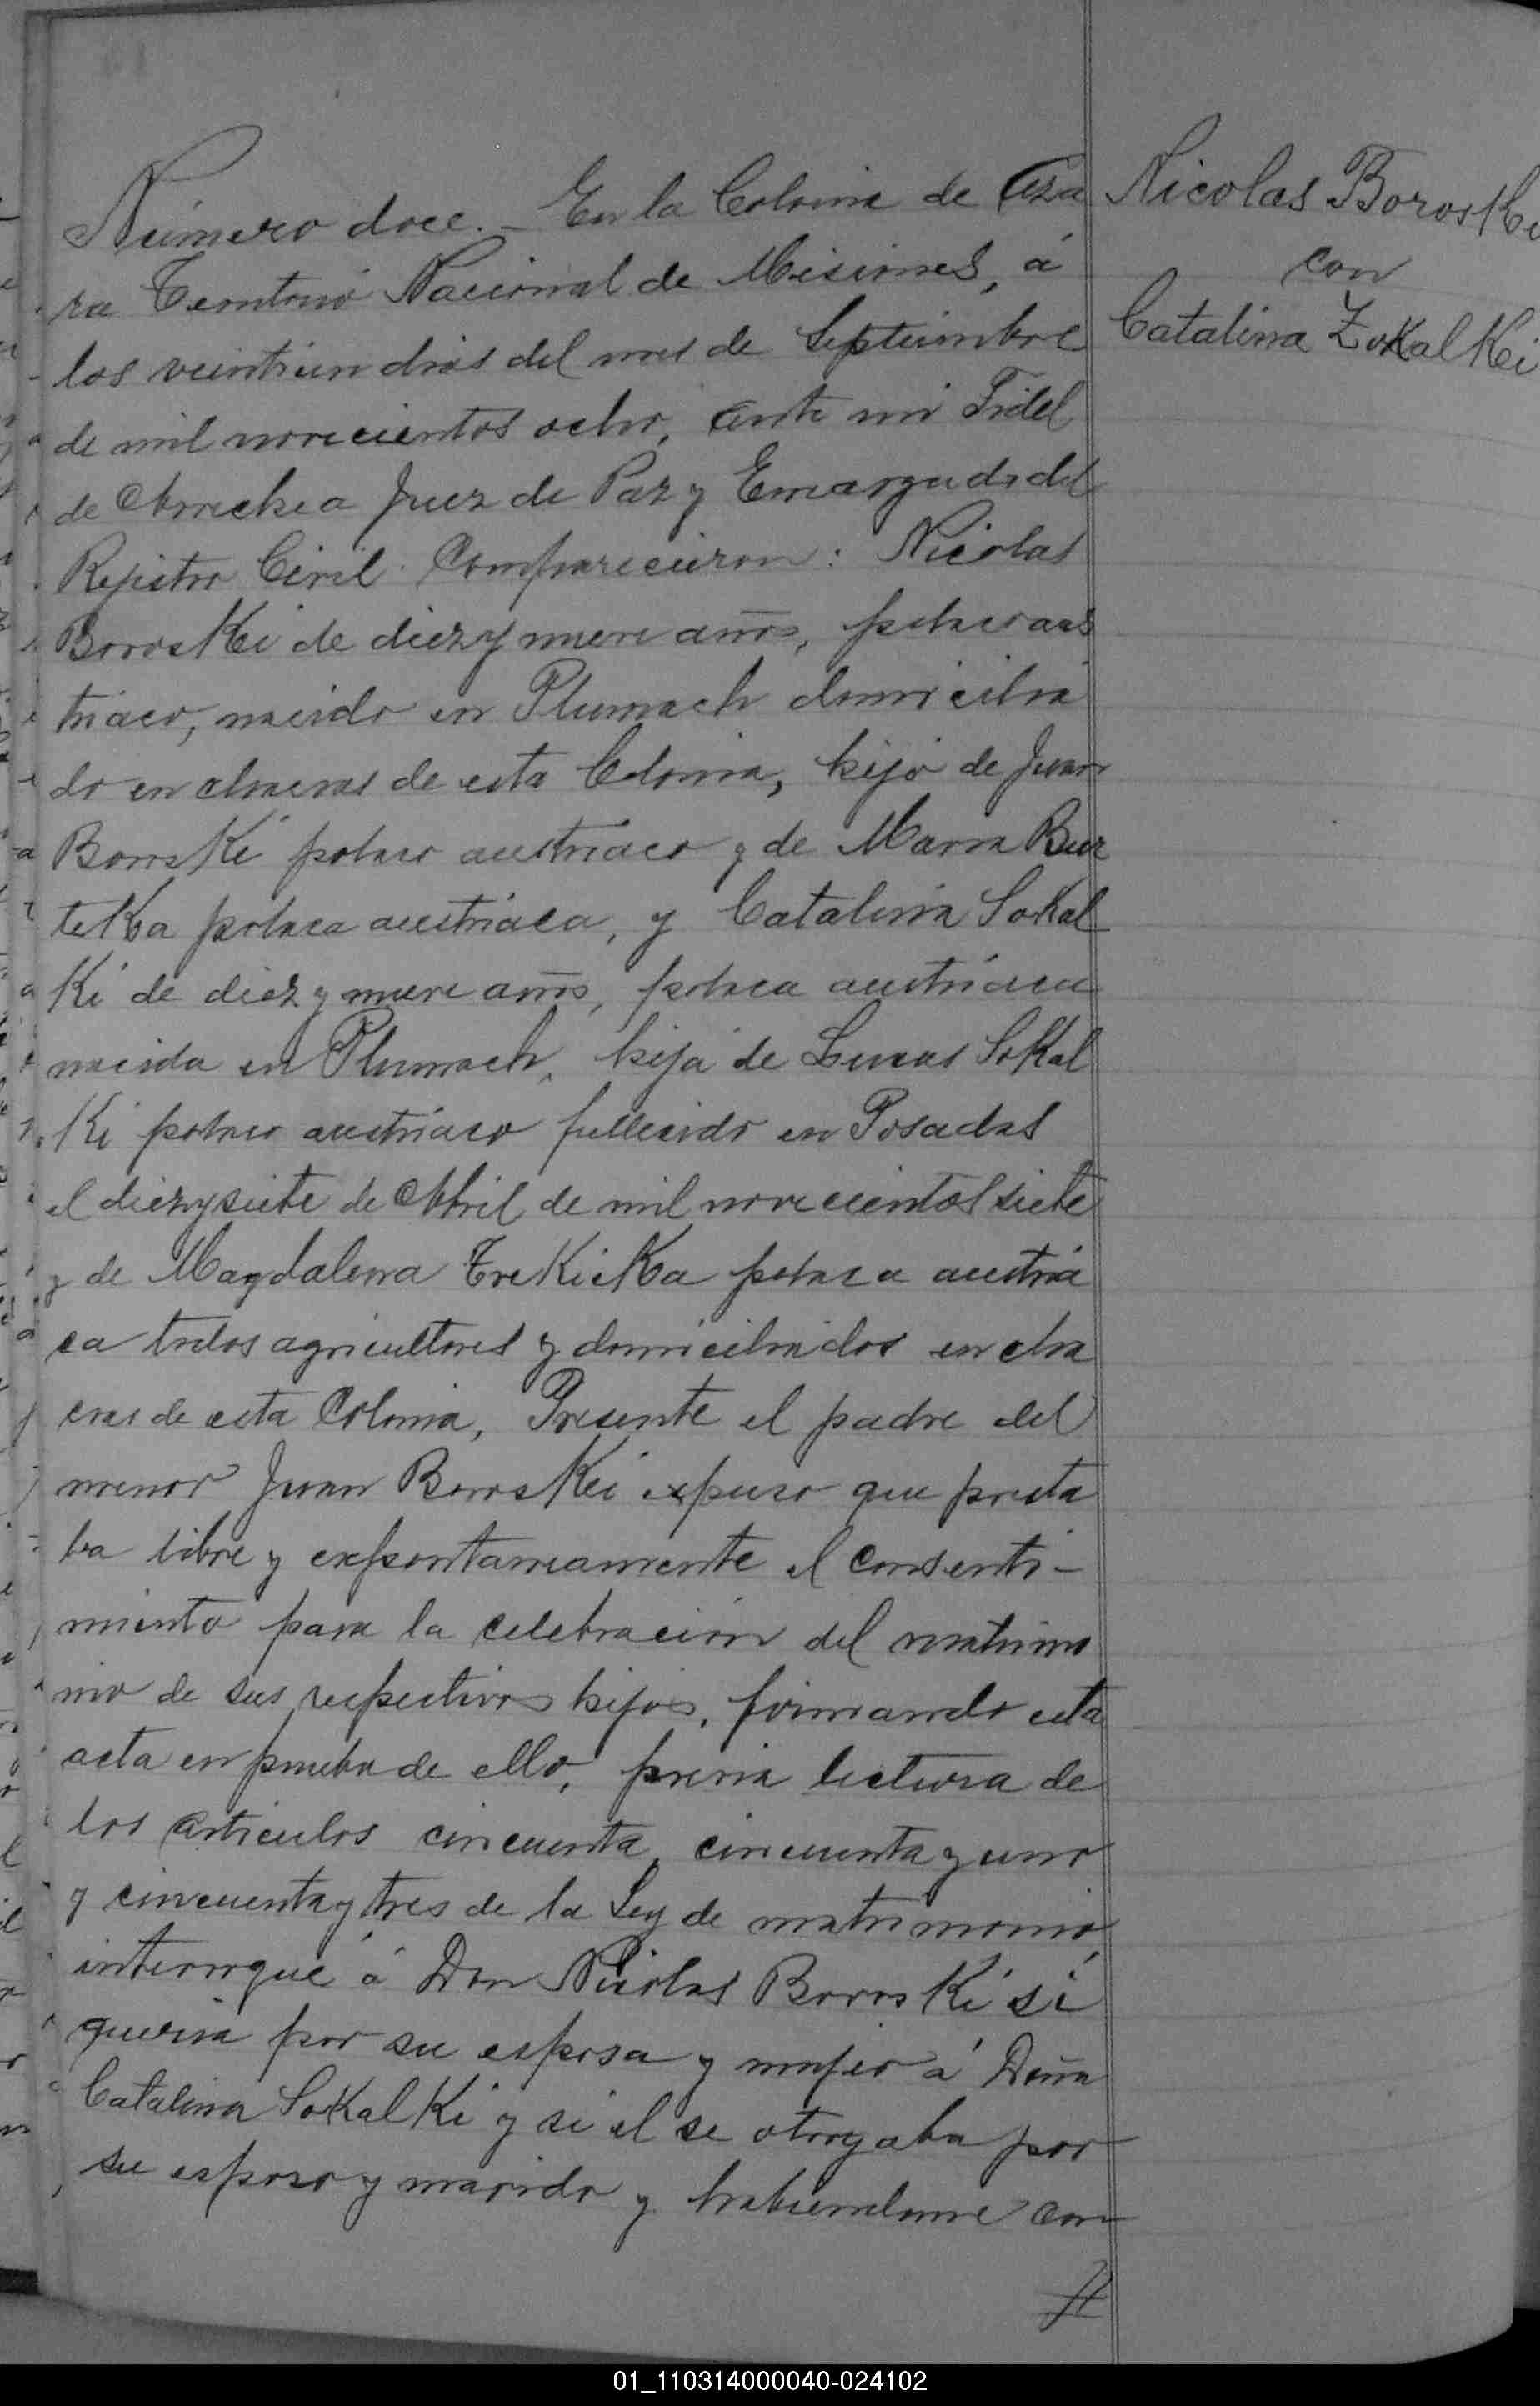 Número doce. - En la Colonia de Aza
ra Territorio Nacional de Misiones, á
los veintiun dias del mes de Septiembre
de mil novecientos ocho, ante mi Fidel
de Arrechea Juez de Paz y Encargado del
Rejistro Civil. Comparecieron: Nicolas
Boroski de diez y nueve años, polaco aus
triaco, nacido en Tlumach domicilia
do en chacras de esta Colonia, hijo de Juan
Boroski polaco austriaco y de Maria Bur
teka polaca austriaca, y Catalina Sokal
ki de diez y nueve años, polaca austriaca
nacida en Tlumach, hija de Lucas Sokal
ki polaco austriaco fallecido en Posadas
el diez y siete de Abril de mil novecientos siete
y de Magdalena Trekicka polaca austria
ca todos agricultores y domiciliados en cha
cras de esta Colonia, Presente el padre del
menor Juan Boroski expuso que presta
ba libre y expontaneamente el consenti-
miento para la celebración del matrimo
nio de sus respectivos hijos, firmando esta
acta en prueba de ello, previa lectura de
los articulos cincuenta, cincuenta y uno
y cincuenta y tres de la Ley de matrimonio,
interrogué á Don Nicolas Boroski si
queria por su esposa y mujer á Doña
Catalina Sokalki y si el se otorgaba por
su esposo y marido y habiendome con
Nicolas Boroski
con
Catalina Zokalki
01_110314000040-024102